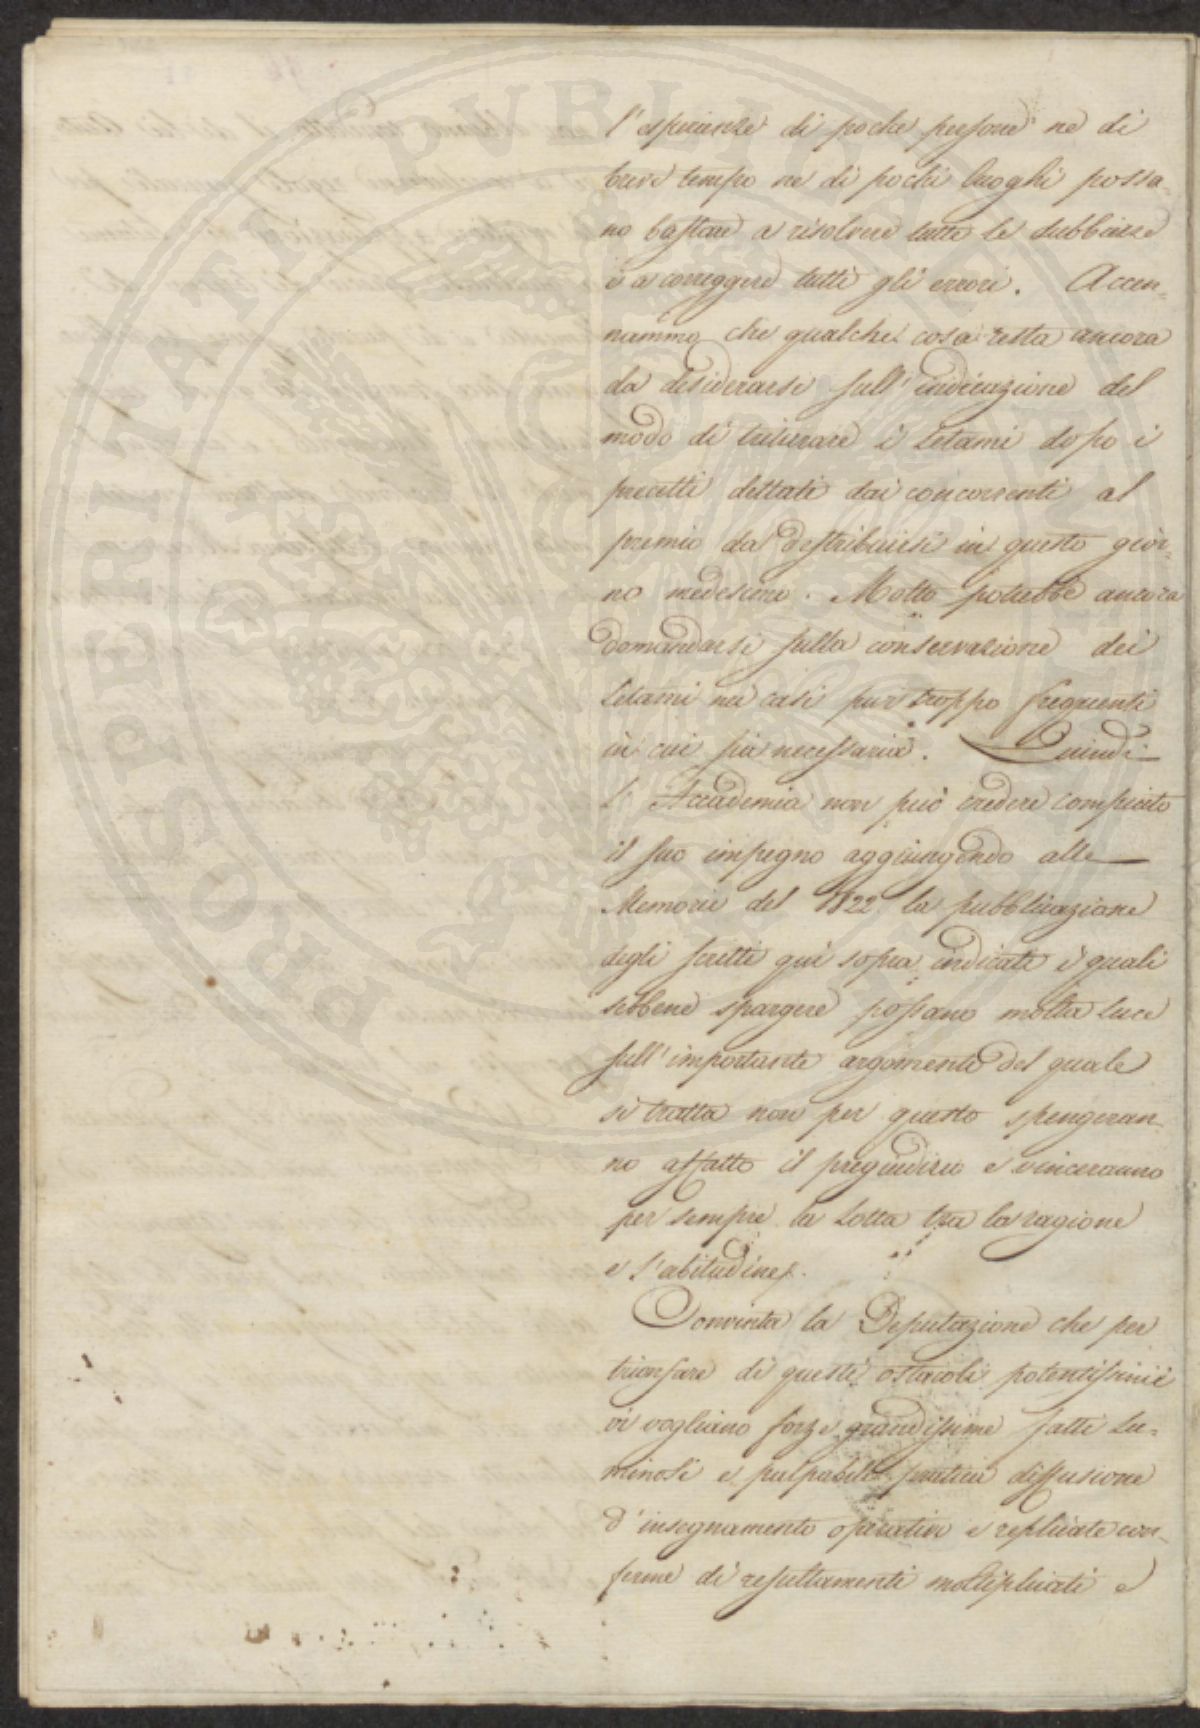 l'esperienze di poche persone ne di
breve tempo ne di pochi luoghi possa-
no bastare a risolvere tutte le dubbiezze
e a correggere tutti gli errori. Accen-
nammo che qualche cosa resta ancora
da desiderarsi sull'indicazione del
modo di triturare i letami dopo i
precetti dettati dai concorrenti al
premio da distribuirsi in questo gior-
no medesimo. Molto potrebbe ancora
domandarsi sulla conservazione dei
letami nei casi pur troppo frequenti
in cui sia necessaria. Quindi
l'Accademia non può credere compiuto
il suo impegno aggiungendo alle
Memorie del 1822 la pubblicazione
degli scritti qui sopra indicati i quali
sebbene spargere possano molta luce
sull'importante argomento del quale
si tratta non per questo spengeran-
no affatto il pregiudizio e vinceranno
per sempre la lotta tra la ragione
e l'abitudine.
Convinta la Deputazione che per
trionfare di questi ostacoli potentissimi
vi vogliano forze grandissime fatti lu-
minosi e palpabili pratica diffusione
d'insegnamento operativo e replicate con-
ferme di resultamenti moltiplicati e
PROSPERITATI PVBLICAE